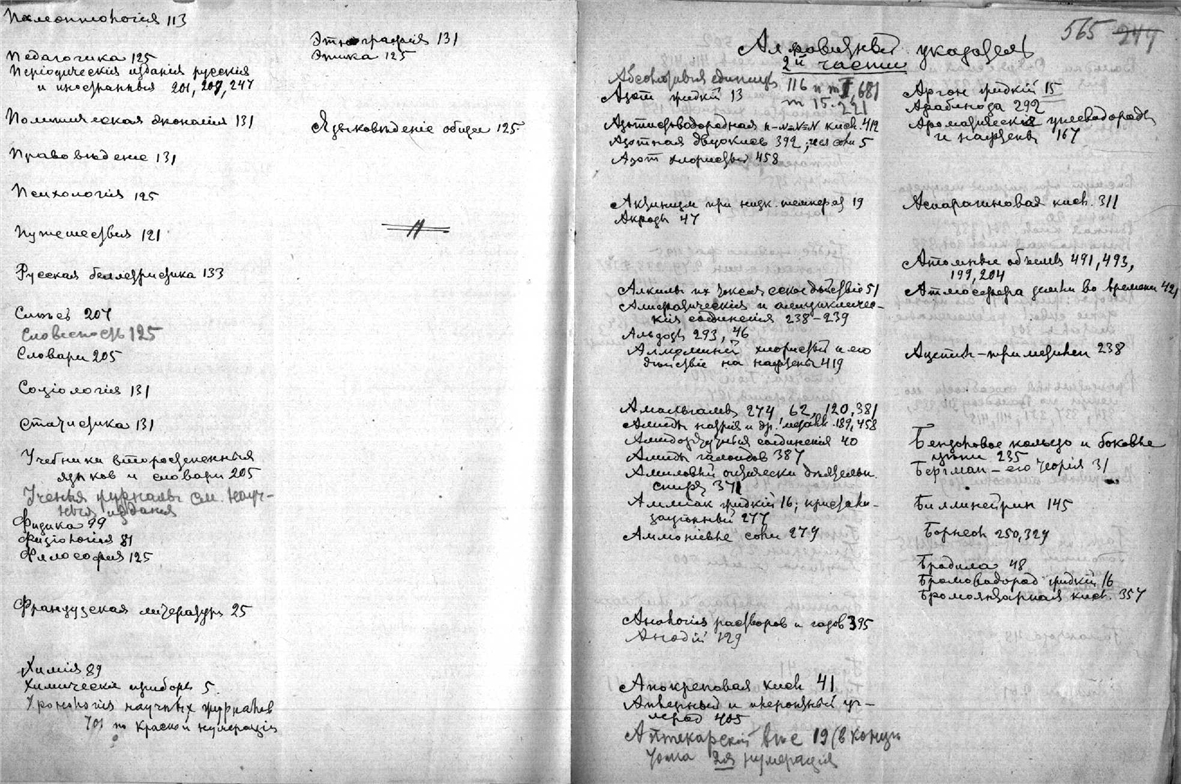 Палеонтологія 113
Педагогика 125
Періодическія изданія русскія
и иностранныя 201, 207, 247
Политическая экономія 131
Правовѣдение 131
Психологія 125
Путешествія 121
Русская беллетристика 133
Смѣсь 207
Словесность 125
Словари 205
Соціологія 131
Статистика 131
Учебники второстепенныя
языков и словари 205
Ученыя журналы см. науч-
ныя изданія
Физика 99
Физіологія 81
Философія 125
Французская литература 25
Химія 89
Химическія приборы 5.
Хронологія научных журналов
701 по красной нумераціи
Этнографія 131
Этика 125
Языковѣдение общее 125
565 247
Алфавитный указатель
2й части
Абсолютныя единицы 116 и т II, 681
Азот жидкій 13 т 15. 221
Азотистоводородная кисл. 412
Азотная двуокись 392; 5
Азот хлористый 458
Акциниум при низк. температ 19
Акрозы 47
Алкилы их 51
Алифатическія и алициклическ-
кія соединенія 238-239
Альдозы 293, 46
Аллюминій хлористый и его
дѣйствіе на нафтены 419
Амальгамы 274, 62, 120, 381
Амиды натрія и др. металл. 189, 458
Амидоразуныя соединенія 40
Амиды галоидов 387
Амиловый оптически дѣятельн.
спирт 371
Аммиак жидкій 16; кристалли-
заціонный 277
Аммонійные соли 279
Аналогія растворов и газов 395
Анодій 129
Апокреновая кисл. 41
Апверный и апероидный уг-
лерод 405
Аптекарскій вѣс 19 (в концѣ
тома 2ая нумерація
Аргон жидкій 15
Арабиноза 292
Ароматическіе углеводороды
и нафтены 167
Аспарагиновая кисл. 311
Атомные объемы 491, 493,
199, 204
Атмосфера земли во времени 421
Ацетил-тримилен 238
Бензоровое кольцо и боковые
цѣпи 235
Бергман - его теорія 31
Биллинейрин 145
Борнеол 250, 324
Бродила 48
Бромоводород жидкій 16
Бромоянтарная кисл. 357